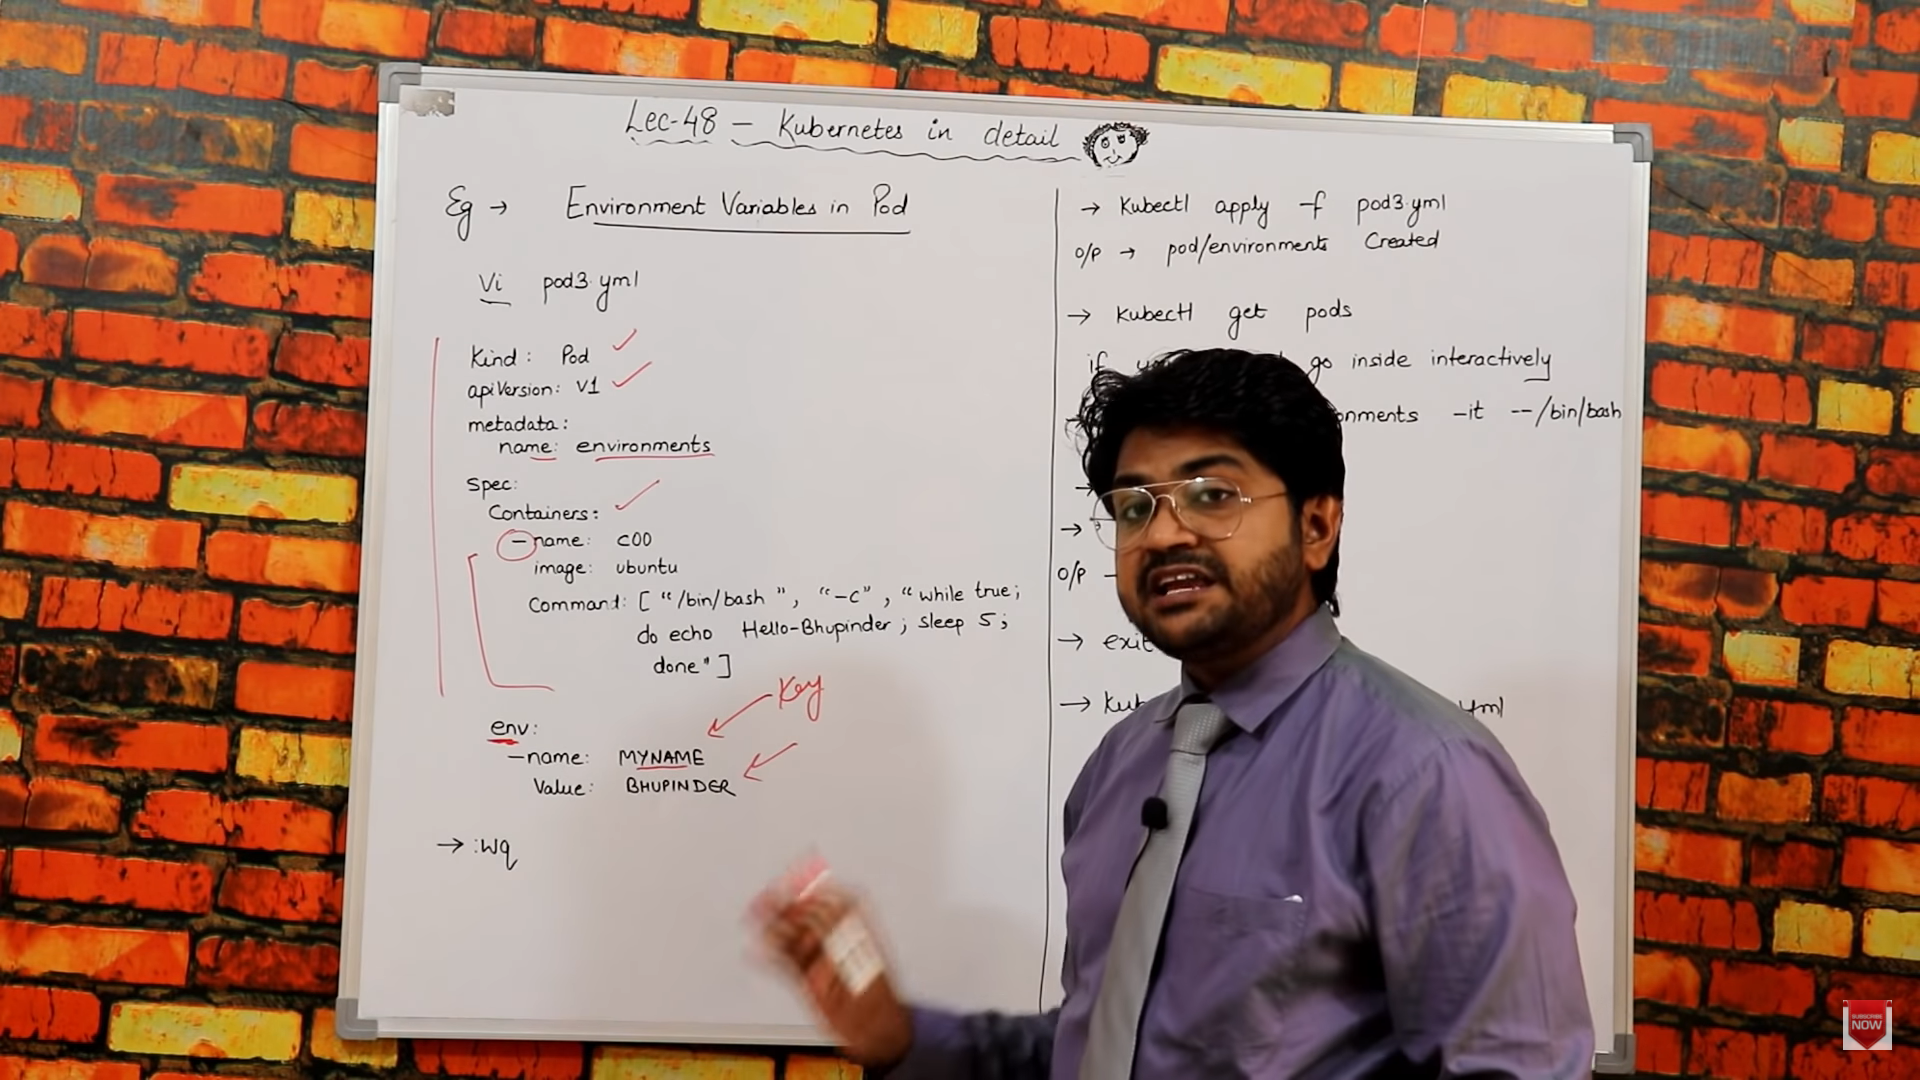 Lec-48 – Kubernetes in detail
Eg → Environment Variables in Pod
Vi pod3.yml
Kind: Pod
apiVersion: v1
metadata:
name: environments
Spec:
Containers:
- name: c00
image: ubuntu
Command: ["/bin/bash", "-c", "while true;
do echo Hello-Bhupinder; sleep 5;
done"]
Key
env:
- name: MYNAME
Value: BHUPINDER
→ :wq
→ Kubectl apply -f pod3.yml
O/P → pod/environments Created
→ Kubectl get pods
if go inside interactively
-it --/bin/bash
→
O/P
→ exit
→
yml
SUBSCRIBE
NOW